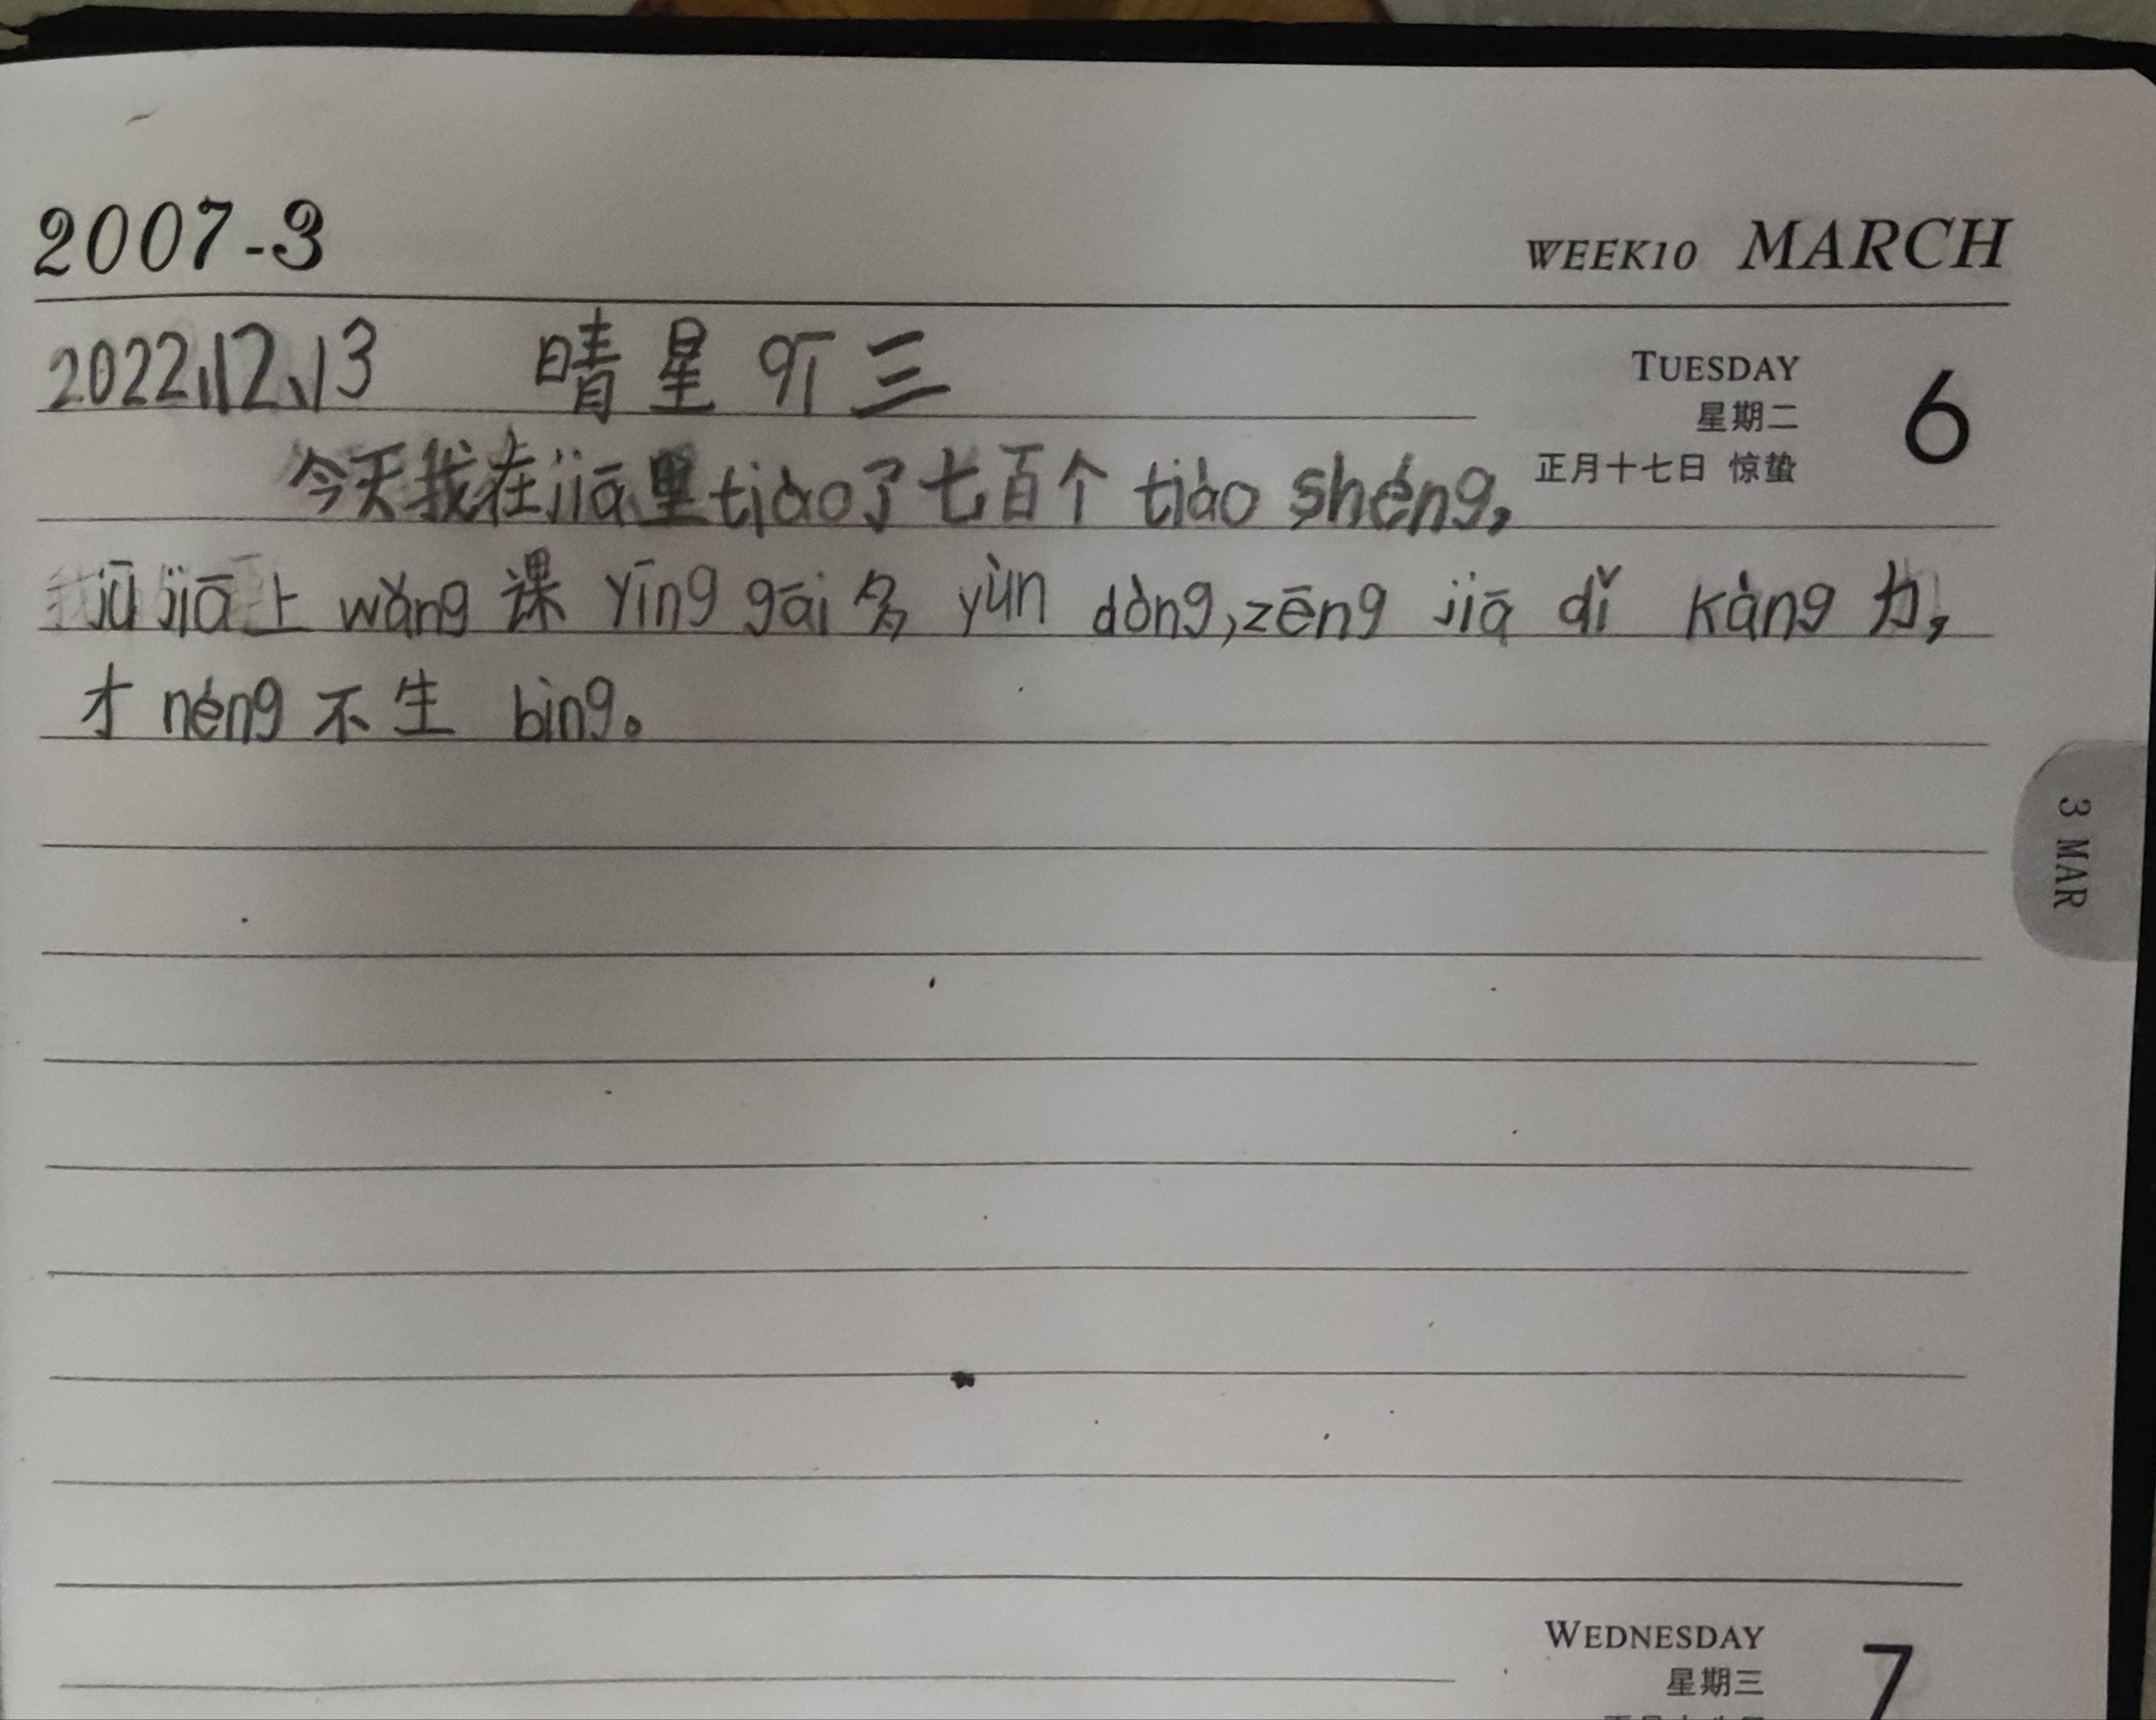 2007-3 WEEK10 MARCH
2022、12、13 晴 星 qī 三
TUESDAY
星期二
正月十七日 惊蛰
6
今天我在jiā里tiào了七百个 tiào shéng,
jū jiā上 wǎng 课 yīng gāi 多 yùn dòng,zēng jiā dǐ kàng 力,
才 néng 不 生 bìng。
3 MAR
WEDNESDAY
星期三
7